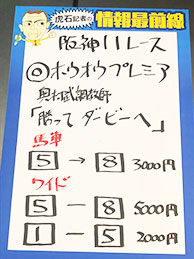 虎石記者の情報最前線
阪神11レース
◎ホウオウプレミア
奥村武調教師
「勝ってダービーへ」
馬単
5 → 8 3000円
ワイド
5 — 8 5000円
1 — 5 2000円